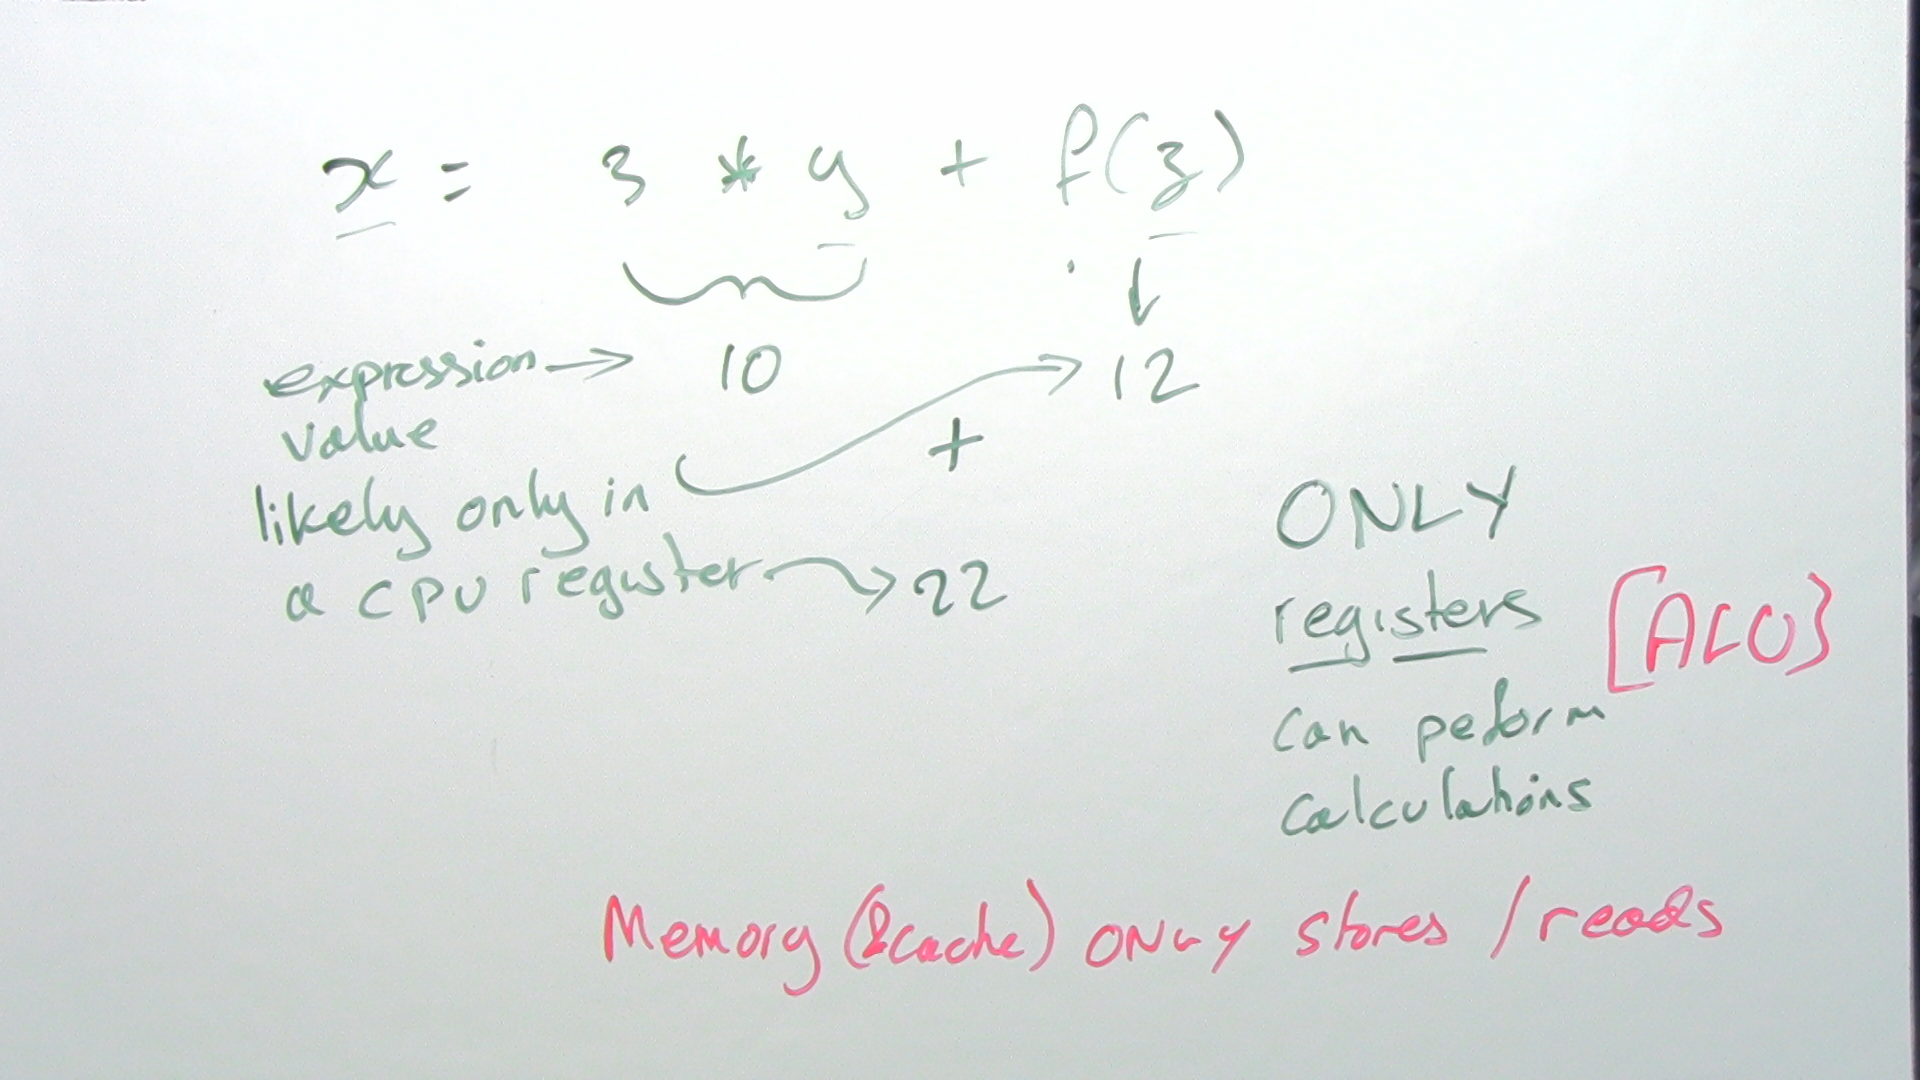 x = 3 * y + f(z)
expression → 10 12
value
+
likely only in
a CPU register → 22
ONLY
registers [ALU]
can peform
calculations
Memory (&cache) ONLY stores / reads